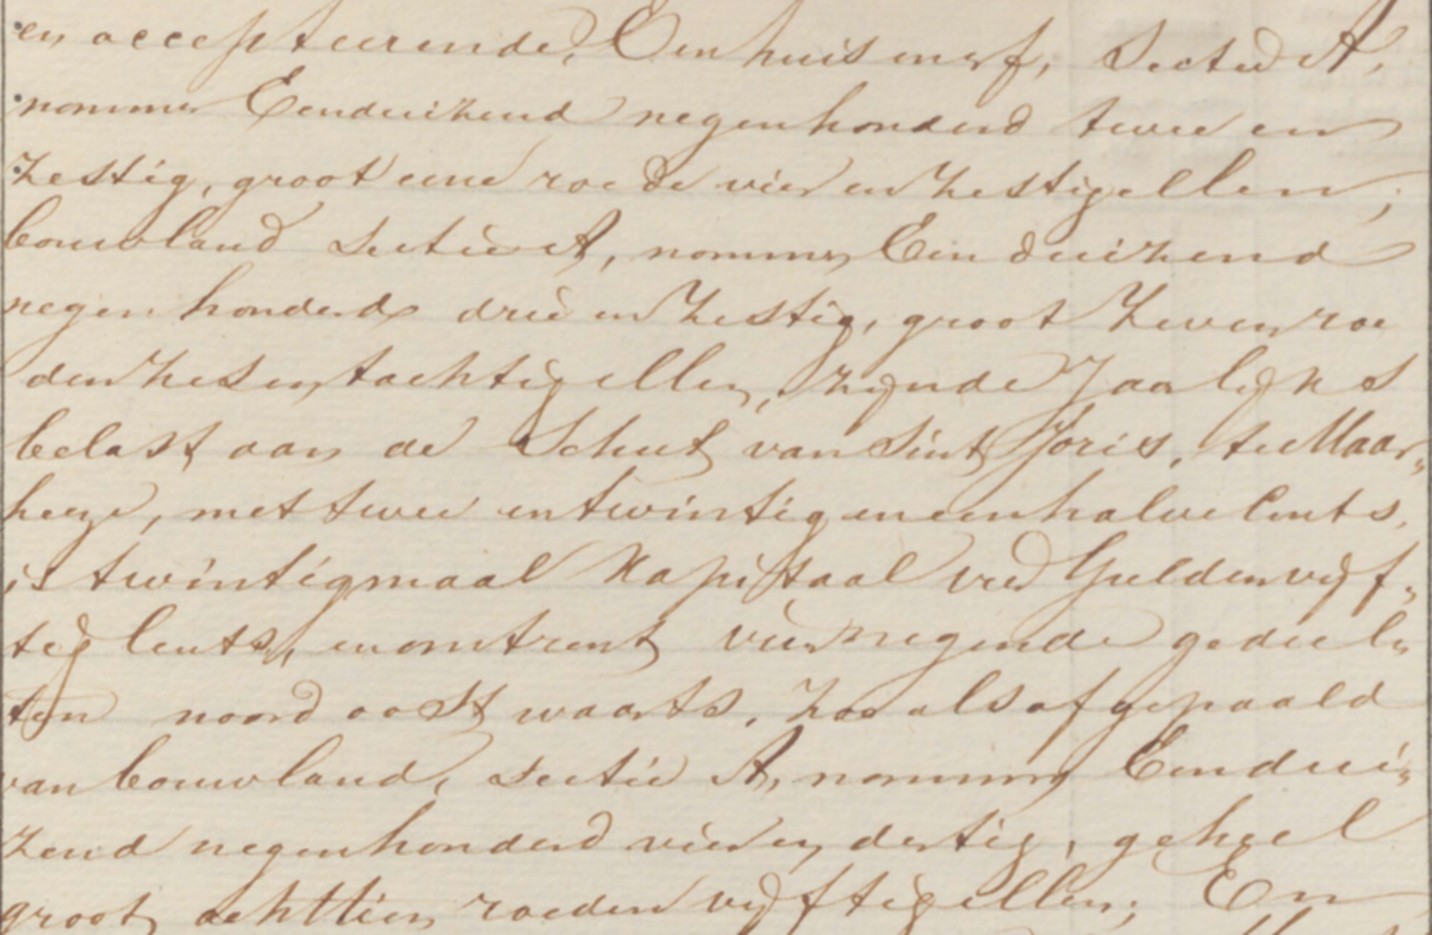 en accepteerende, Een huis en erf, Sectie A,
nommer Eenduizend negenhonderd twee en
zestig, groot eene roede vier en zestig ellen;
bouwland Sectie A, nommer Een duizend
negen honderd drie en zestig, groot zeven roe
den zes en tachtig ellen, zijnde Jaarlijks
belast aan de Schut van Sint Joris, te Maar„
heeze, met twee en twintig en een halve Cents,
is twintigmaal Kapitaal vier Gulden vijf„
tig Cents, en omtrent vier negende gedeel„
ten noord oostwaarts, zoo als afgepaald
van bouwland, Sectie A, nommer Eendui„
zend negenhonderd vier en dertig, geheel
groot achttien roeden vijftig ellen; En